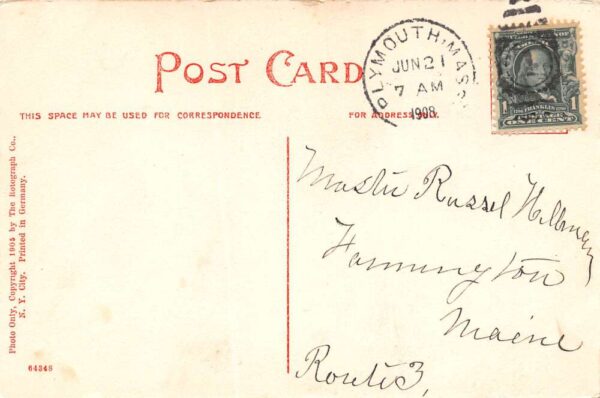 POST CARD
THIS SPACE MAY BE USED FOR CORRESPONDENCE
FOR ADDRESS ONLY.
PLYMOUTH, MASS.
JUN 21
7 AM
1908
FRANKLIN
1 1
POSTAGE
ONE CENT
Master Russel
Farmington
Maine
Route 3,
Photo Only, Copyright 1905 by The Rotograph Co.,
N. Y. City. Printed in Germany.
64348